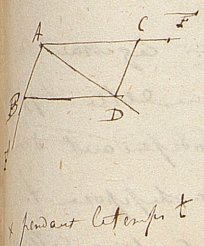 A C F
B D
x pendant le temps t